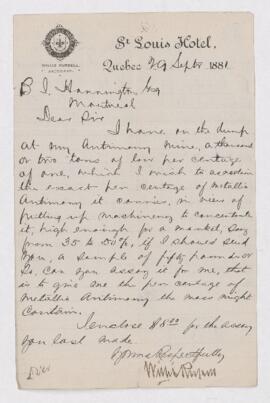 WILLIS RUSSELL
PRESIDENT.
St Louis Hotel,
Quebec 29 Septr 1881
B J Harrington Esq
Montreal
Dear Sir
I have on the dump
at my Antimony Mine, a thousand
or two tons of low per centage
of ore, which I wish to ascertain
the exact per centage of Metallic
Antimony it carries, in view of
putting up machinery to concentrate
it, high enough for a market, say
from 35 to 50%, if I should send
you, a sample of fifty pounds or
so. Can you assay it for me, that
is to give me the per centage of
Metallic Antimony the mass might
contain.
I enclose $5.00 for the assay
you last made.
Yours Respectfully
Willis Russell